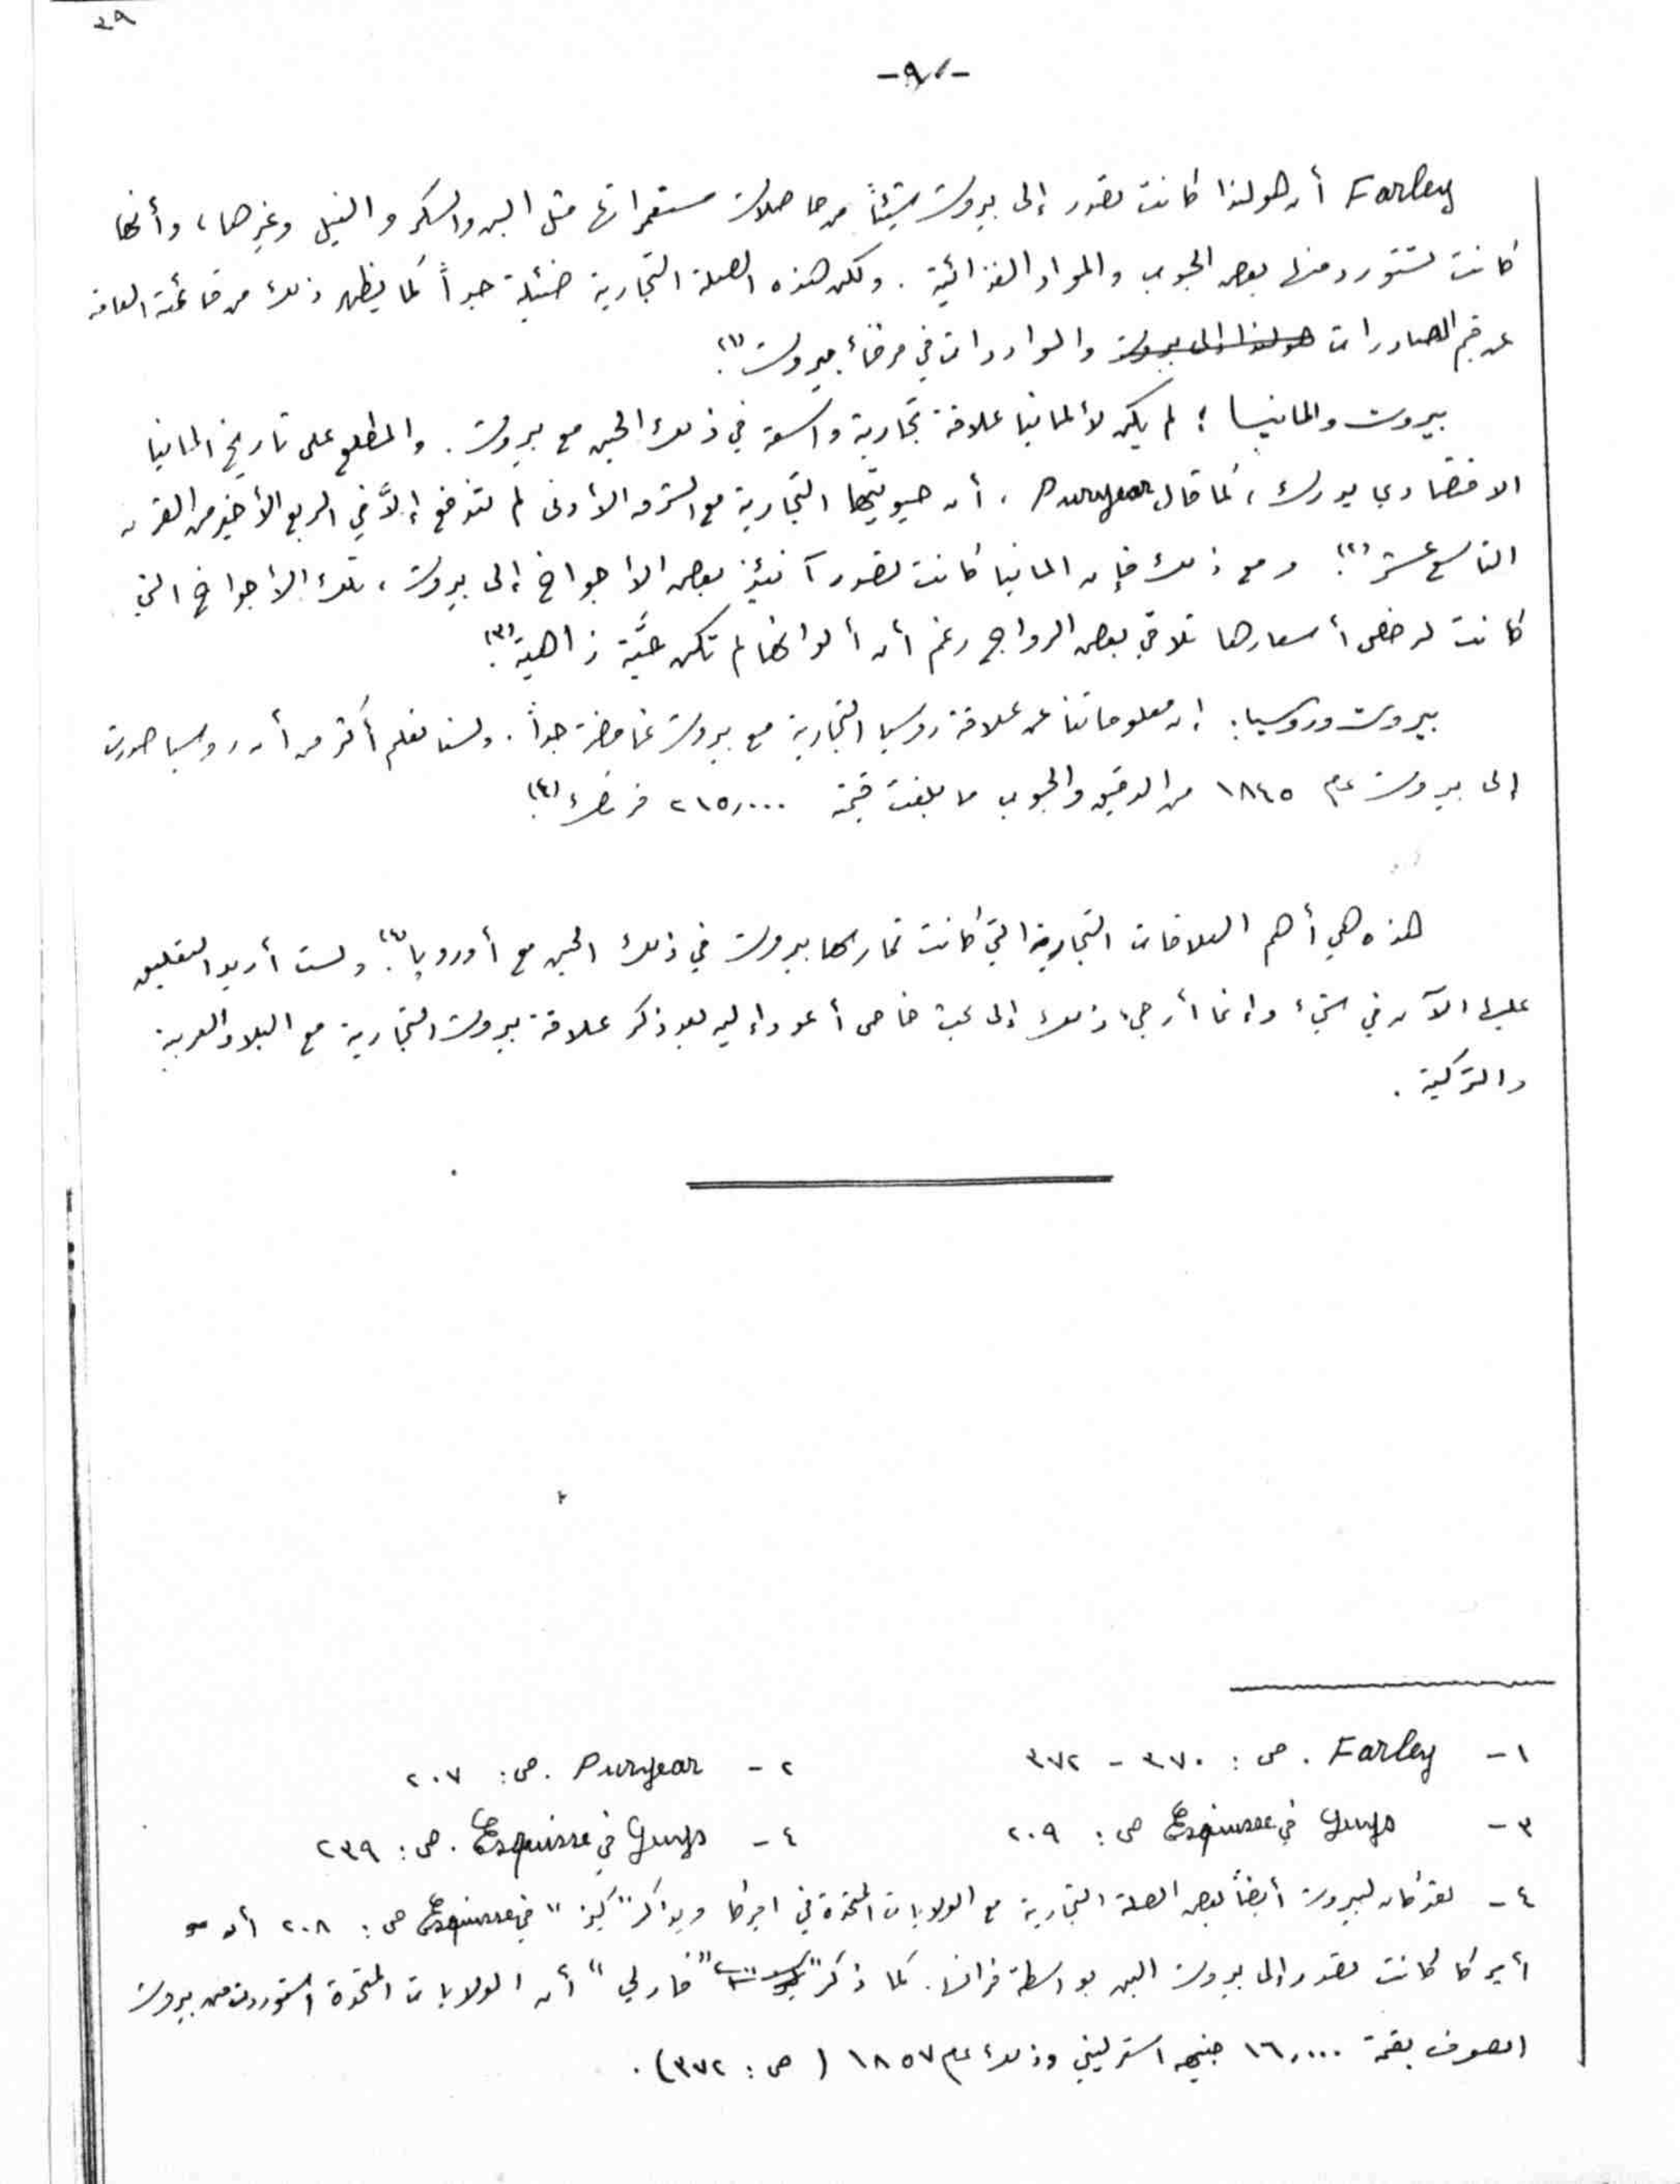 ٣٩
-٩-
Farley أن هولندا كانت تصدر إلى بيروت شيئاً من حاصلات مستعمراتها مثل البن والسكر والنيل وغيرها، وأنها
كانت تستورد منها بعض الحبوب والمواد الغذائية. ولكن هذه الصلة التجارية ضئيلة جداً كما يظهر ذلك من قائمته العامة
عن الصادرات هولندا إلى بيروت والواردات في مرفأ بيروت (١).
بيروت والمانيا؛ لم يكن لألمانيا علاقة تجارية واسعة في ذلك الحين مع بيروت. والمطلع على تاريخ المانيا
الاقتصادي يدرك، كما قال Puryear، أن حيويتها التجارية مع الشرق الأدنى لم تتوضح إلاَّ في الربع الأخير من القرن
التاسع عشر (٢). ومع ذلك فإن المانيا كانت تصدر آنئذٍ بعض الأجواخ إلى بيروت، تلك الأجواخ التي
كانت لرخص أسعارها تلاقي بعض الرواج رغم أن ألوانها لم تكن حيَّة زاهية (٣).
بيروت وروسيا: إن معلوماتنا عن علاقة روسيا التجارية مع بيروت غامضة جداً. ولسنا نعلم أكثر من أن روسيا صدرت
إلى بيروت عام ١٨٤٥ من الدقيق والحبوب ما بلغت قيمته ٢١٥,٠٠٠ فرنك (٤).
هذه هي أهم العلاقات التجارية التي كانت تمارسها بيروت في ذلك الحين مع أوروبا (٤). ولست أريد التعليق
عليها الآن في شيء وإنما أرجيء ذلك إلى بحث خاص أعود إليه بعد ذكر علاقة بيروت التجارية مع البلاد العربية
والتركية.
١- Farley. ص: ٣٧٠ - ٣٧٢ ٢- Puryear. ص: ٢٠٧
٣- Guys في Esquisse ص: ٢٠٩ ٤- Guys في Esquisse. ص: ٢٣٩
٤- لقد كان لبيروت أيضاً بعض الصلة التجارية مع الولايات المتحدة في اميركا ويذكر "كيز" في Esquisse ص: ٢٠٨ أن
أميركا كانت تصدر إلى بيروت البن بواسطة فرانسا. كما ذكر "فارلي" أن الولايات المتحدة استوردت من بيروت
الصوف بقيمة ١٦,٠٠٠ جنيه استرليني وذلك عام ١٨٥٧ (ص: ٣٧٢).